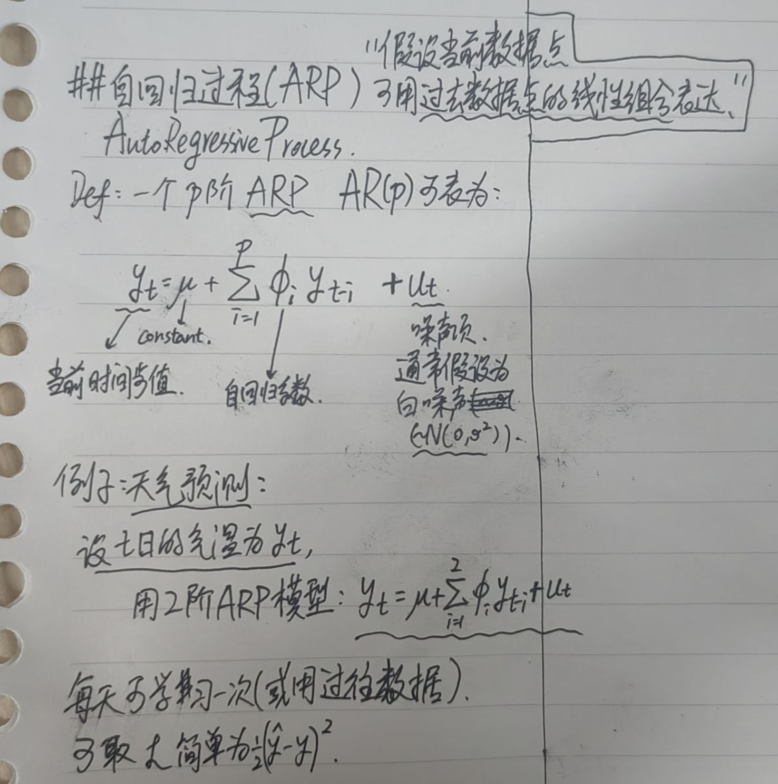 "假设当前数据点
##自回归过程(ARP) 可用过去数据点的线性组合表达."
AutoRegressive Process.
Def: 一个p阶 ARP AR(p)可表为:
y_t = μ + Σ_{i=1}^{P} ϕ_i y_{t-i} + u_t.
constant.
噪声项.
当前时间步值.
自回归系数.
通常假设为
白噪声
(~N(0,σ²)).
例子:天气预测:
设t日的气温为y_t,
用2阶ARP模型: y_t = μ + Σ_{i=1}^{2} ϕ_i y_{t-i} + u_t
每天可学习一次(或用过往数据).
可取L简单为½(ŷ-y)².